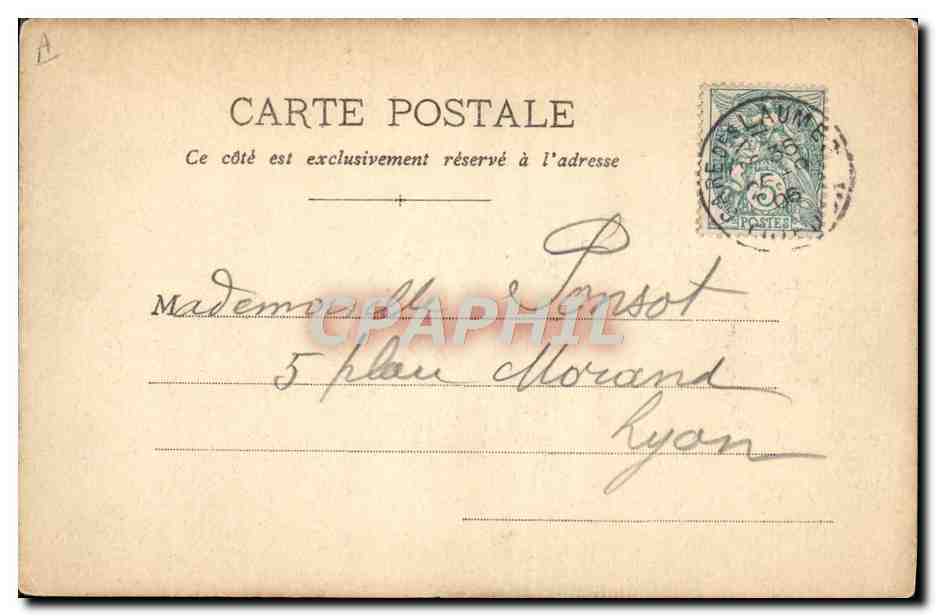 A
CARTE POSTALE
Ce côté est exclusivement réservé à l'adresse
GARE DES LAUMES
5
POSTES
Mademoiselle Ponsot
CPAPHIL
5 place Morand
Lyon